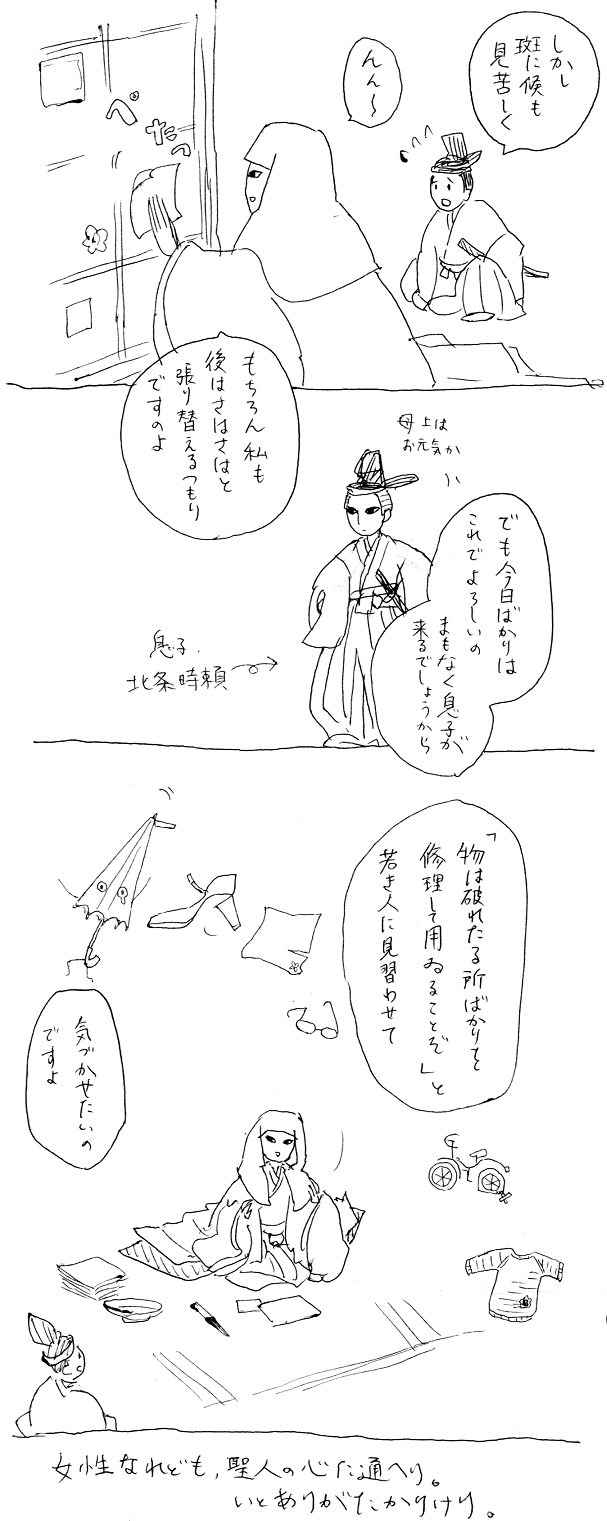 しかし
斑に候も
見苦しく
んん〜
ぺたっ
もちろん私も
後はさはさはと
張り替えるつもり
ですのよ
母上は
お元気か
でも今日ばかりは
これでよろしいの
まもなく息子が
来るでしょうから
息子.
北条時頼
「物は破れたる所ばかりを
修理して用ゐることぞ」と
若き人に見習わせて
気づかせたいの
ですよ
女性なれども、聖人の心に通へり。
いとありがたかりけり。